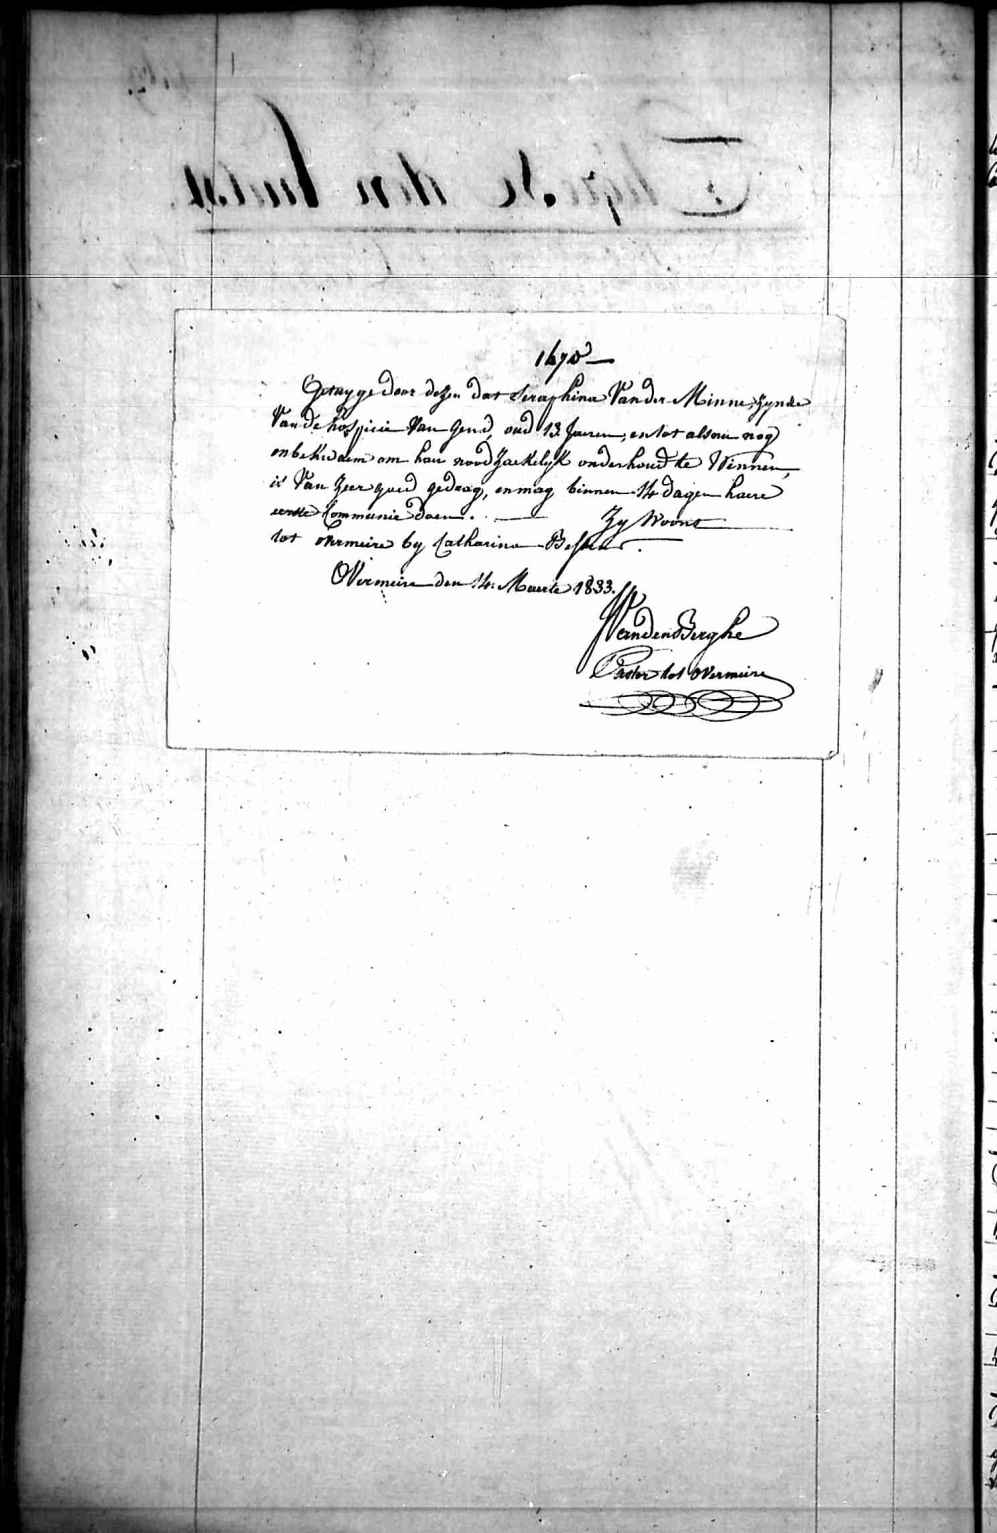 1470
Getuyge door dezen dat Seraphina Vander Minne, Zynde
Van de hospicie Van Gend, oud 13 Jaeren, en tot alsnu nog
onbekwaem om hau noodzaekelyk onderhoud te Winnen,
is Van Zeer goed gedrag, en mag binnen 14 dagen haere
eerste Communie doen. Zy Woont
tot overmeire by Catharina
OVermeire den 14 Maerte 1833.
VandenBerghe
Pastor tot overmeire